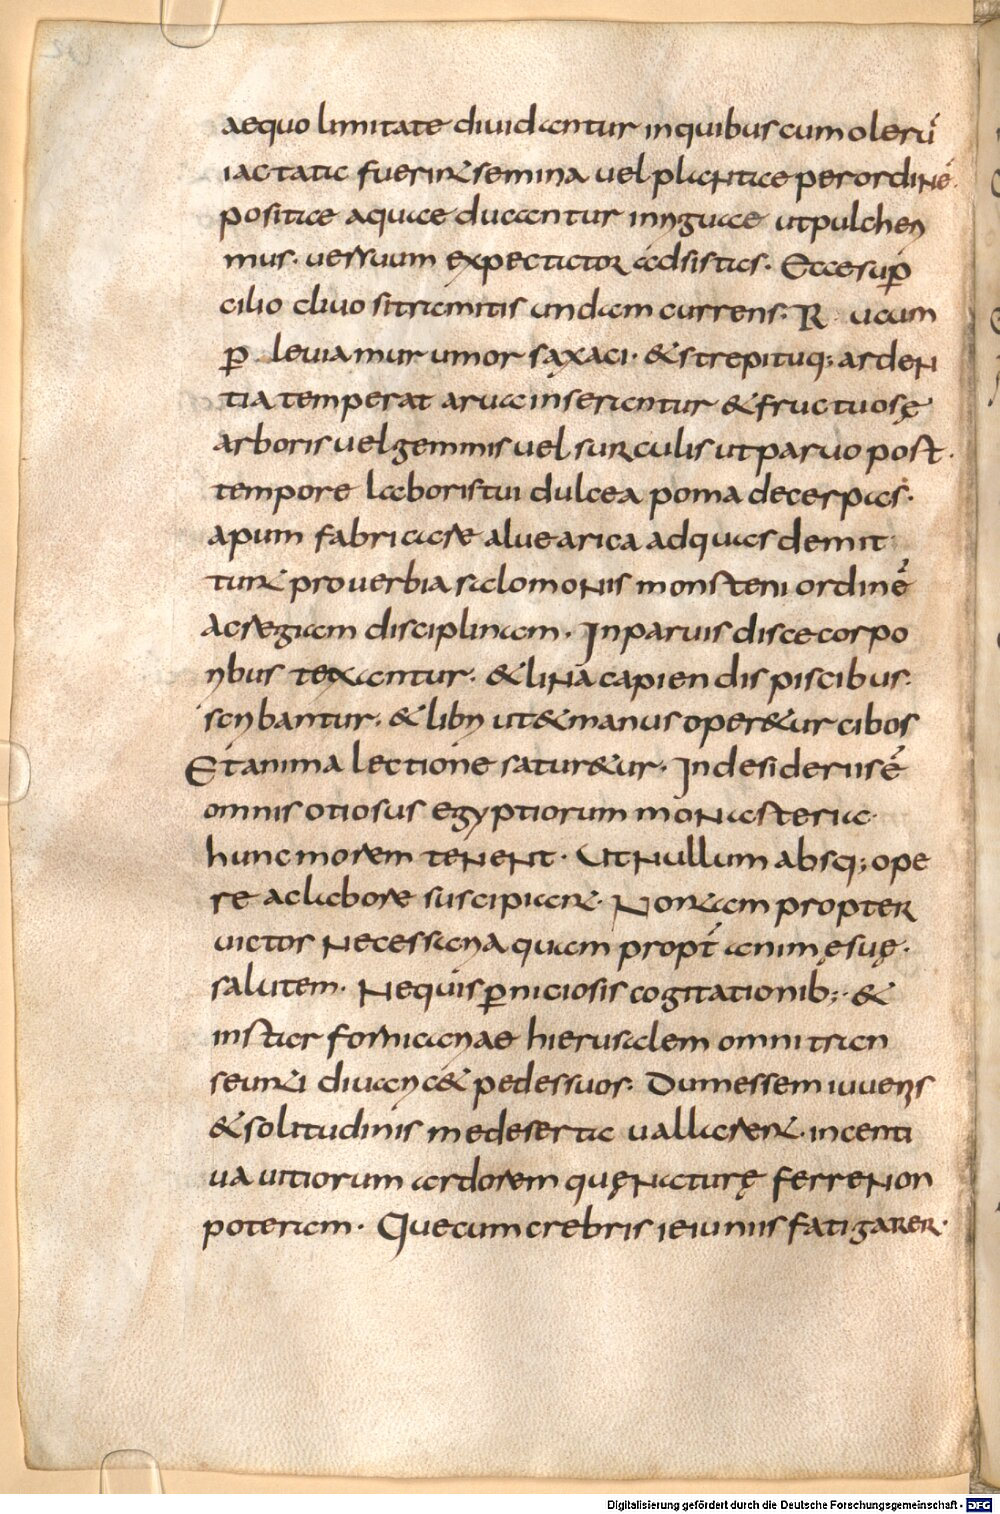 aequo limitate diuidantur inquibus cum olerū
iactata fuerint semina uel plantae per ordinē.
positae aquae ducantur inriguae ut pulcherri
mus. uersuum expectator adsistas. Ecce sup
cilio cliuo sitramitis undam currens. R ucum
p leuia mur umor saxaci. & strepituq; arden
tia temperat arua inserantur & fructuosę
arboris uel gemmis uel surculis ut paruo post.
tempore laboris tui dulcea poma decerpas.
apum fabricare aluearica ad quas demit
tunt prouerbia salomonis monsteni ordinē
ac regiam disciplinam. In paruis disce corpo
ribus texantur. & lina capiendis piscibus.
scribantur. & libri ut & manus oper&ur cibos
Et anima lectione satur&ur. In desideriis ē
omnis otiosus egyptiorum monasteria.
hunc morem tenent. Ut nullum absq; ope
re ac labore suscipiant. Non tam propter
uictor necessaria quam propt animę suę.
salutem. Nequis pniciosis cogitationib;. &
instar fornicariae hierusalem omni tran
seunti diuaric& pedes suos. Dum essem iuuenis
& solitudinis me deserta uallarent. incenti
ua uitiorum ardorem quę naturę ferre non
poteram. Que cum crebris ieiuniis fatigarer.
Digitalisierung gefördert durch die Deutsche Forschungsgemeinschaft - DFG